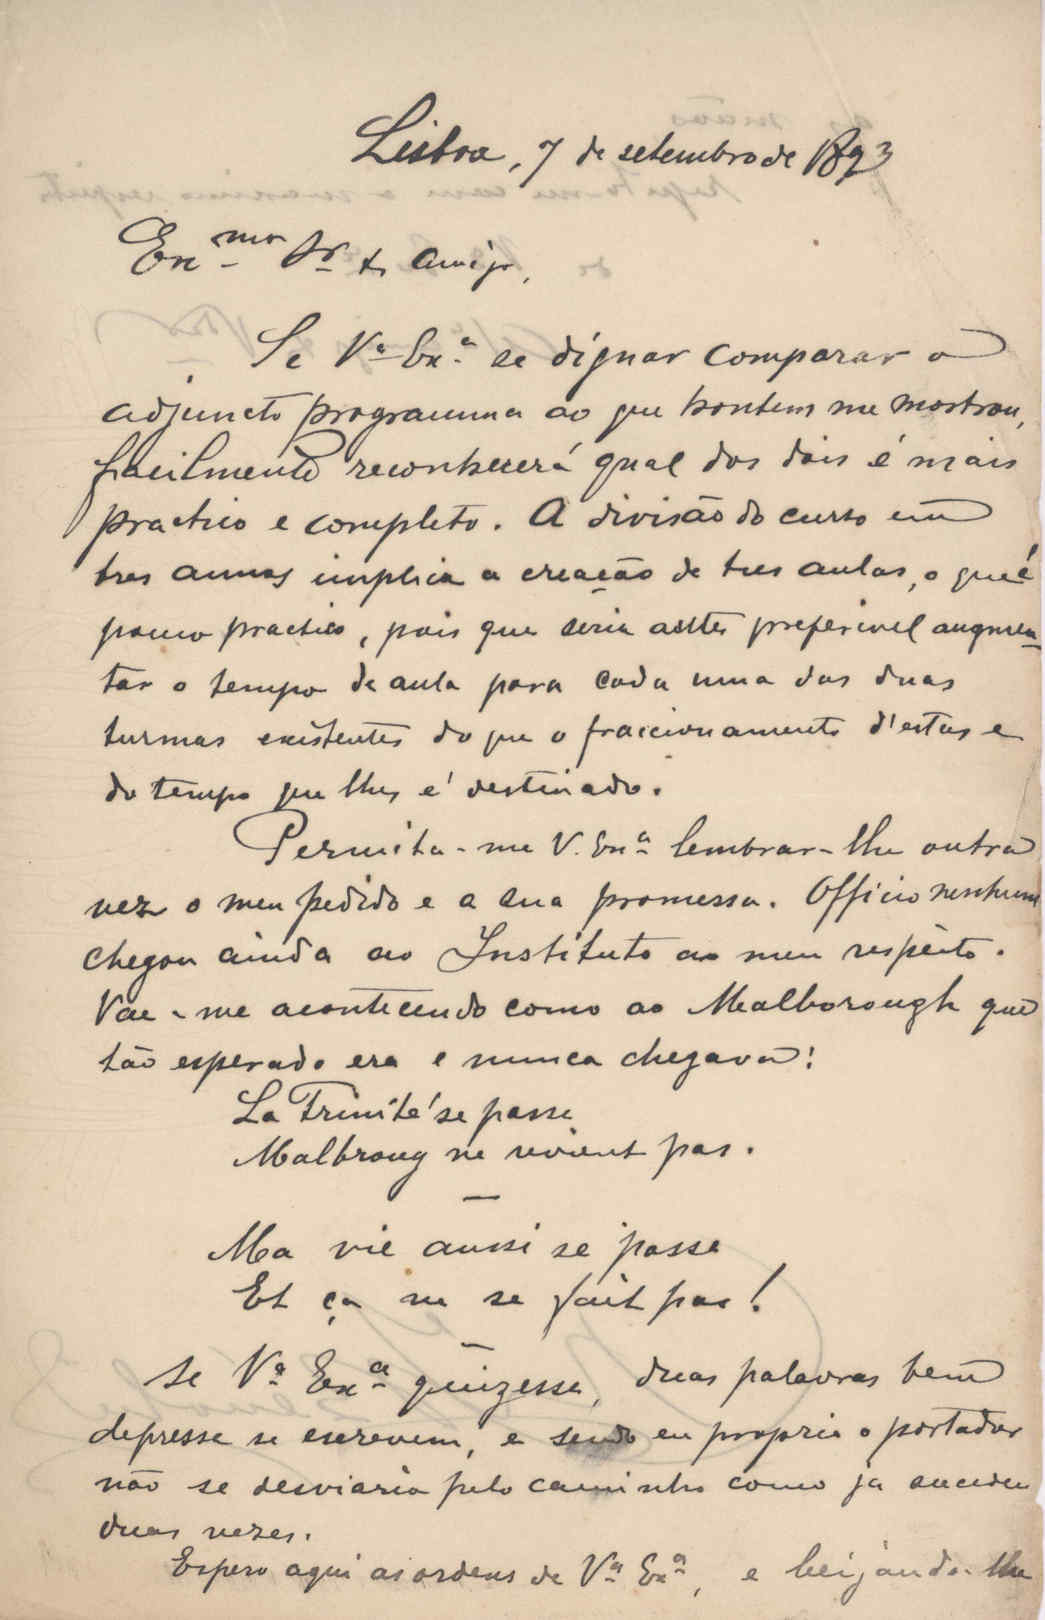 Lisboa, 7 de setembro de 1893
Exmo Sr e Amigo,
Se Va Exa se dignar comparar o
adjuncto programma ao que hontem me mostrou,
facilmente reconhecerá qual dos dois é mais
practico e completo. A divisão do curso em
tres annos implica a creação de tres aulas, o que é
pouco practico, pois que seria antes preferivel augmen-
tar o tempo de aula para cada uma das duas
turmas existentes do que o fraccionamento d'estas e
do tempo que lhes é destinado.
Permita-me V. Exa lembrar-lhe outra
vez o meu pedido e a sua promessa. Officio nenhum
chegou ainda ao Instituto ao meu respeito.
Vae-me acontecendo como ao Malborough que
tão esperado era e nunca chegava:
La Trinité se passe
Malbroug ne revient pas.
—
Ma vie aussi se passe
Et ça ne se fait pas!
—
Se Va Exa quizesse, duas palavras bem
depresse se escrevem, e sendo eu proprio o portador
não se desviaria pelo caminho como já succedeu
duas vezes.
Espero aqui as ordens de Va Exa, e beijando-lhe